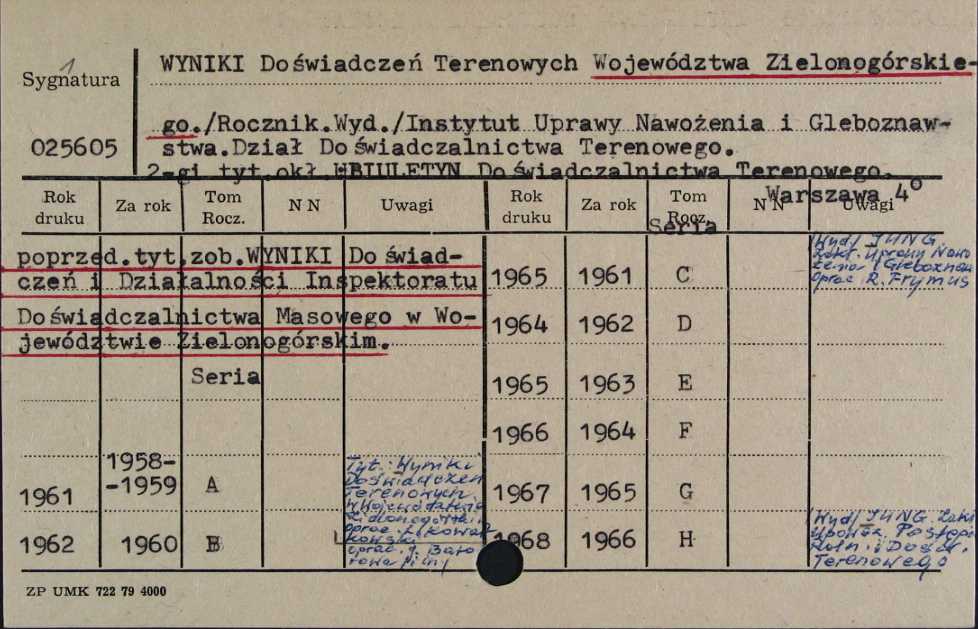 Sygnatura
025605
WYNIKI Doświadczeń Terenowych Województwa Zielonogórskie-
go./Rocznik.Wyd./Instytut Uprawy Nawożenia i Gleboznaw-
stwa.Dział Doświadczalnictwa Terenowego.
2-gi tyt.okł.BIULETYN Doświadczalnictwa Terenowego.
Warszawa 4°
Rok druku Za rok Tom Rocz. N N Uwagi Rok druku Za rok Tom Rocz. N N Uwagi
Seria
poprzed.tyt.zob.WYNIKI Doświad-
czeń i Działalności Inspektoratu
Doświadczalnictwa Masowego w Wo-
jewództwie Zielonogórskim.
Seria
1961 1958-
-1959 A
Tyt. Wyniki
Doświadczeń
Terenowych
w Województwie
oprac.
oprac. J.
1962 1960 B
1965 1961 C
Wyd/ IUNG
Uprawy Nawo
żenia i Gleboznaw
oprac R. Frymus
1964 1962 D
1965 1963 E
1966 1964 F
1967 1965 G
1968 1966 H
Wyd/ IUNG
Upowsz. Postępu
Roln. i Dośw.
Terenowego
ZP UMK 722 79 4000